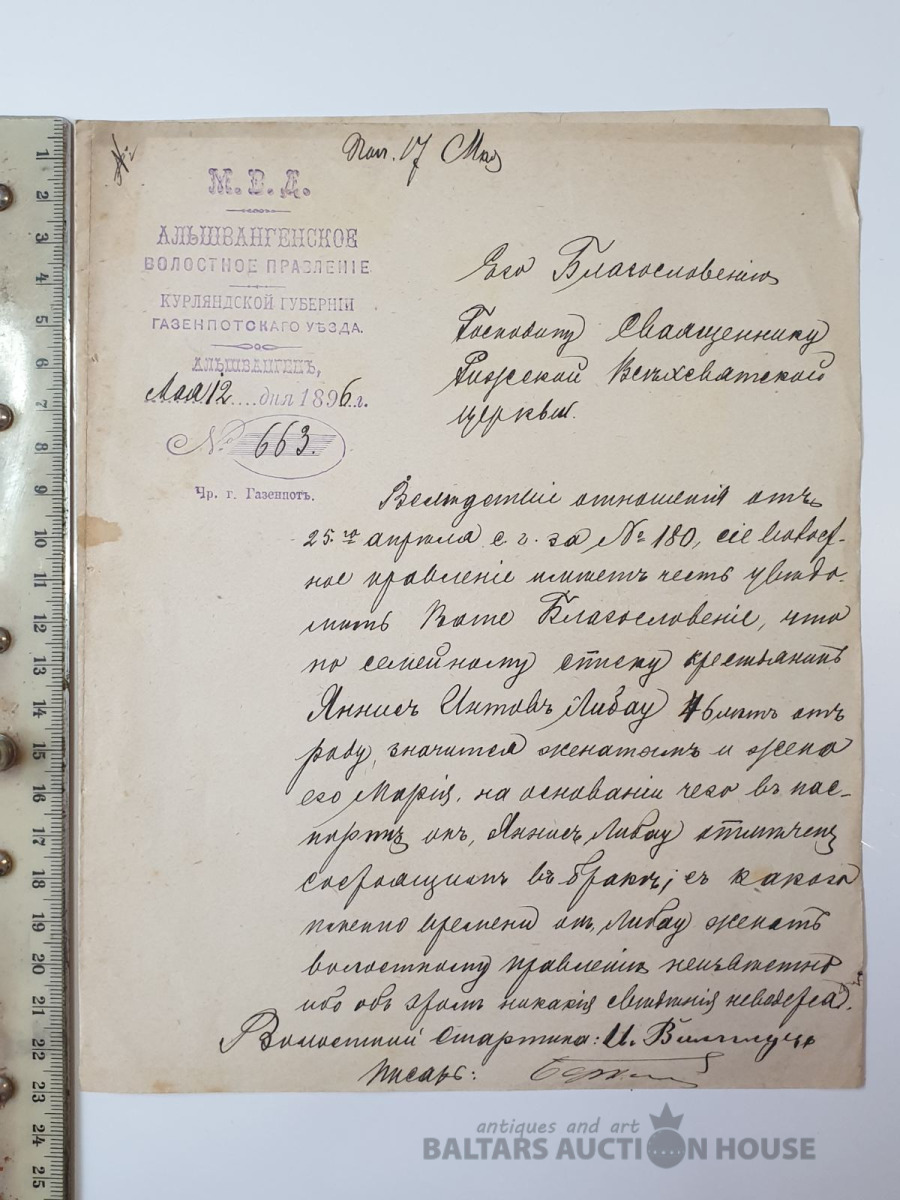 №
Пол. 17 Мая
М. В. Д.
АЛЬШВАНГЕНСКОЕ
ВОЛОСТНОЕ ПРАВЛЕНІЕ
КУРЛЯНДСКОЙ ГУБЕРНІИ
ГАЗЕНПОТСКАГО УѢЗДА.
АЛЬШВАНГЕНЪ,
Мая 12 дня 1896 г.
№ 663.
Чр. г. Газенпотъ.
Его Благословенію
Господину Священнику
Рижской Всѣхсвятской
церкви.
Вслѣдствіе отношенія отъ
25.го апрѣля с. г. за № 180, сіе волост-
ное правленіе имѣетъ честь увѣдо-
мить Ваше Благословеніе, что
по семейному списку крестьянинъ
Яннисъ Интовъ Либау 46 лѣтъ отъ
роду, значится женатымъ и жена
его Марія, на основаніи чего въ пас-
портѣ онъ, Яннисъ Либау отмѣченъ
состоящимъ въ бракѣ; съ какого
именно времени онъ, Либау женатъ
волостному правленію неизвѣстно
ибо объ этомъ никакія свѣдѣнія
Волостной Старшина: И.
Писарь:
antiques and art
BALTARS AUCTION HOUSE
1
2
3
4
5
6
7
8
9
10
11
12
13
14
15
16
17
18
19
20
21
22
23
24
25